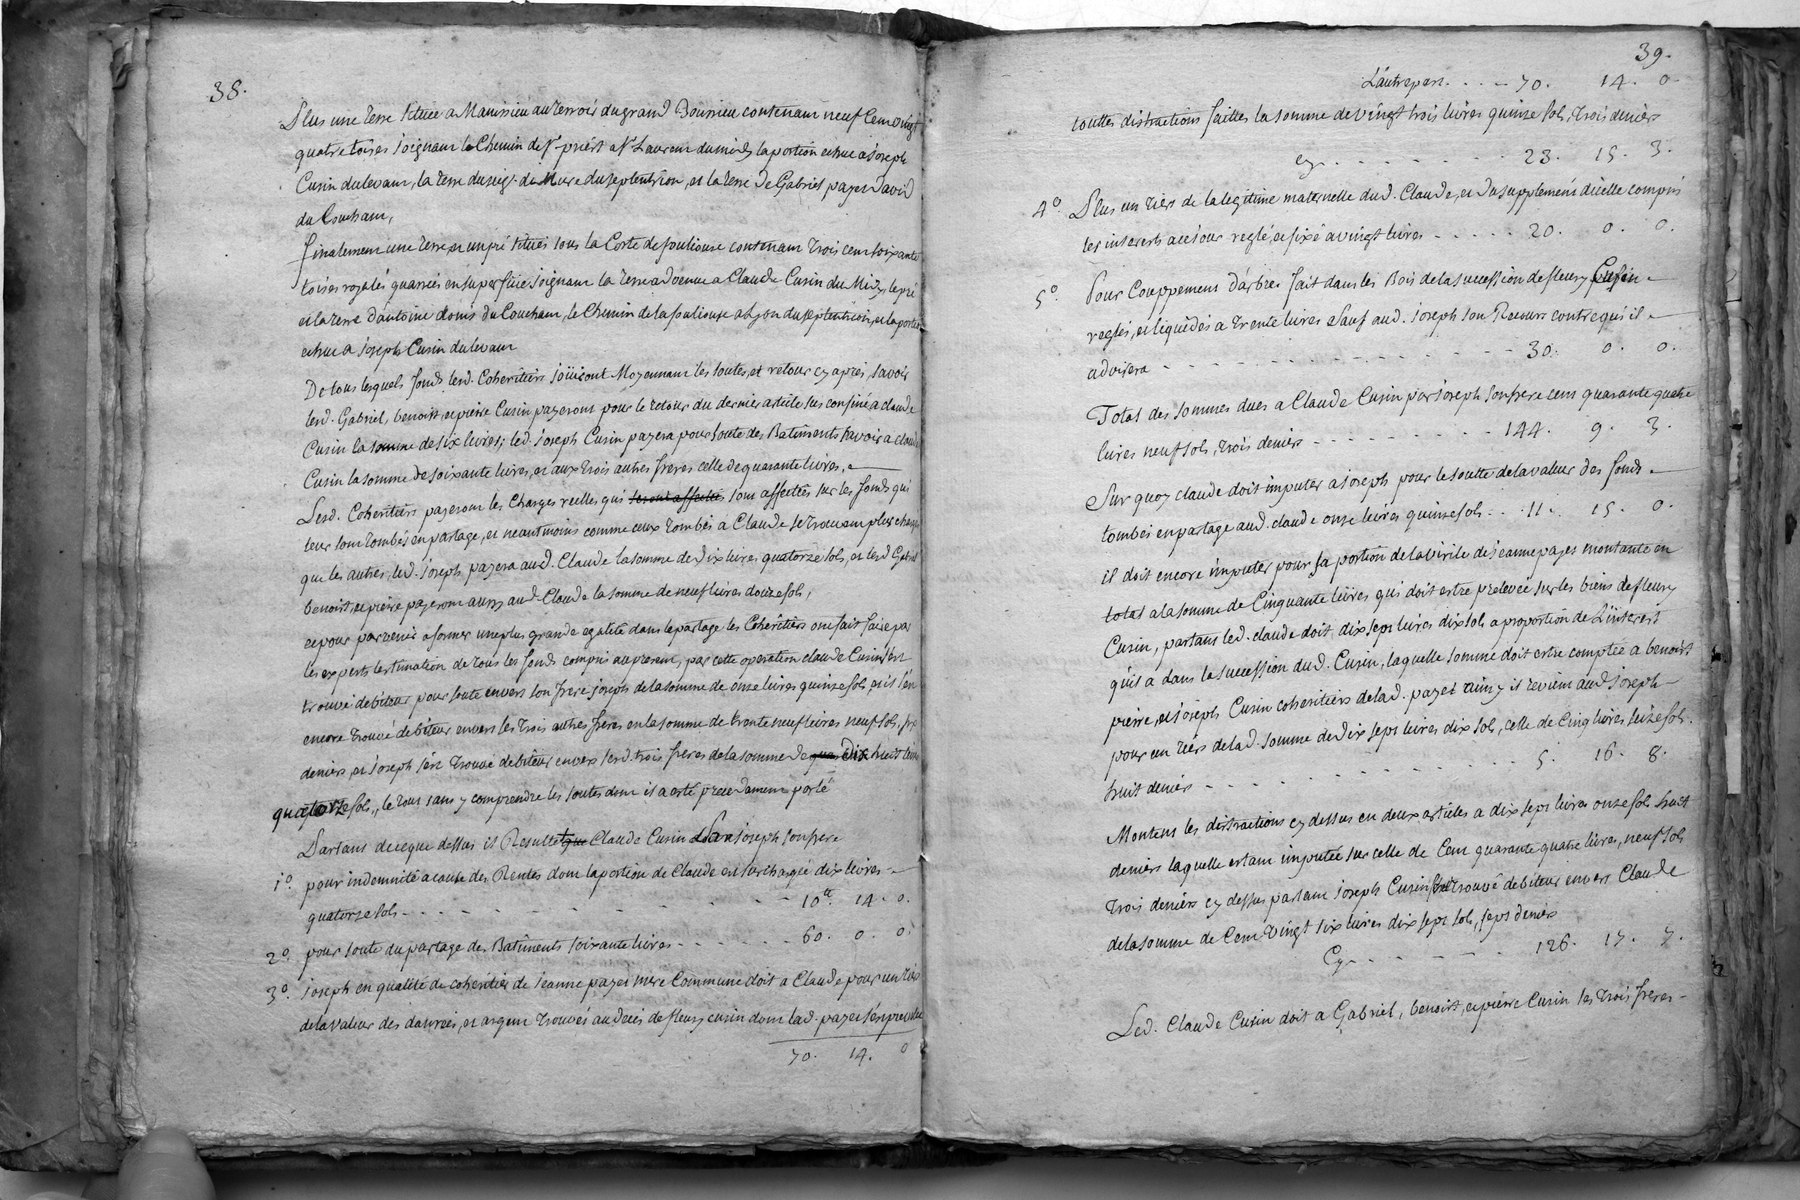 38.
Plus une terre située a Manissieu au terroir du grand Boursieu contenant neuf cent vingt
quatre toises joignant le Chemin de St priest a St Laurent du midy la portion echue a joseph
Cusin du levant, la terre du sieur de Mure du septentrion, et la terre de Gabriel payet david
du Couchant,
finalement une terre et un pré situés sous la Corte de fouliouse contenant trois cent soixante
toises royales quarrées en superficie joignant la terre advenue a Claude Cusin du Midy, le pré
et la terre d'antoine donis du Couchant, le Chemin de la fouliouse a lyon du septentrion, et la portion
echue a joseph Cusin du levant
De tous lesquels fonds lesd. Coheritiers joüiront Moyennant les soutes, et retour cy apres, savoir
lesd. Gabriel, benoist, et pierre Cusin payeront pour le retour du dernier article sus confiné a claude
Cusin la somme de six livres; led. joseph Cusin payera pour soute des Batiments savoir a claude
Cusin la somme de soixante livres, et aux trois autres freres celle de quarante livres,
Lesd. Coheritiers payeront les Charges reelles qui seront affectées sont affectées sur les fonds qui
leur sont tombés en partage, et neantmoins comme ceux tombés a Claude se trouvant plus chargés
que les autres, led. joseph payera aud. Claude la somme de dix livres quatorze sols, et lesd Gabriel
benoist, et pierre payeront aussy aud. Claude la somme de neuf livres douze sols,
et pour parvenir a former une plus grande egalité dans le partage les Coheritiers ont fait faire par
les experts lestimation de tous les fonds compris au present, par cette operation claude Cusin s'est
trouvé debiteur pour soute envers son frere joseph de la somme de onze livres quinze sols, et il s'en
encore trouvé debiteur envers les trois autres freres en la somme de trente neuf livres neuf sols, six
deniers, et joseph s'est trouvé debiteur envers lesd. trois freres de la somme de dix huit livres
quatorze sols, le tout sans y comprendre les soutes dont il a esté precedament porté
Partant de ce que dessus il Resulte que Claude Cusin joseph son frere
1°. pour indemnité a cause des Rentes dont la portion de Claude est surchargée dix livres
quatorze sols - - - - - 10ᵗᵗ 14. 0.
2°. pour soute du partage des Batiments soixante livres - - - - - 60. 0. 0.
3°. joseph en qualité de coheritier de jeanne payet mere Commune doit a Claude pour un tiers
de la valeur des danrées, et argent trouvés au deces de fleury cusin dont lad. payet s'est prevalue
70. 14. 0
39.
L'autre part. - - - - 70. 14. 0.
touttes distractions faittes la somme de vingt trois livres quinze sols, trois deniers
cy - - - - - - - 23. 15. 3.
4°. Plus un tiers de la legitime maternelle dud. Claude, et du supplement d'icelle compris
les interests a ce jour reglé, et fixé a vingt livres - - - - - 20. 0. 0.
5°. Pour Couppement d'arbres fait dans les Bois de la succession de fleury Cusin
reglés, et liquidés a trente livres sauf aud. joseph son Recours contre qui il
advisera - - - - - - - - 30. 0. 0.
Total des sommes dues a Claude Cusin par joseph son frere cent quarante quatre
livres neuf sols, trois deniers - - - - - - - 144. 9. 3.
Sur quoy claude doit imputer a joseph pour le soutte de la valeur des fonds
tombés en partage aud. claude onze livres quinze sols - - 11. 15. 0.
il doit encore imputer pour sa portion de la virile de jeanne payet montante en
total a la somme de Cinquante livres qui doit estre prelevée sur les biens de fleury
Cusin, partant led. claude doit dix sept livres dix sols a proportion de L'interest
qu'il a dans la succession dud. Cusin, laquelle somme doit estre comptée a benoist
pierre, et joseph Cusin coheritiers de lad. payet ainsy il revient aud joseph
pour un tiers de lad. somme de dix sept livres dix sols, celle de Cinq livres, seize sols.
huit deniers - - - - - - - - 5. 16. 8.
Montent les distractions cy dessus en deux articles a dix sept livres onze sols huit
deniers laquelle estant imputée sur celle de Cent quarante quatre livres, neuf sols
trois deniers cy dessus partant joseph Cusin se trouve debiteur envers Claude
de la somme de Cent vingt six livres dix sept sols, sept deniers
Cy - - - - - - 126. 17. 7.
Led. Claude Cusin doit a Gabriel, benoist, et pierre Cusin ses trois freres -